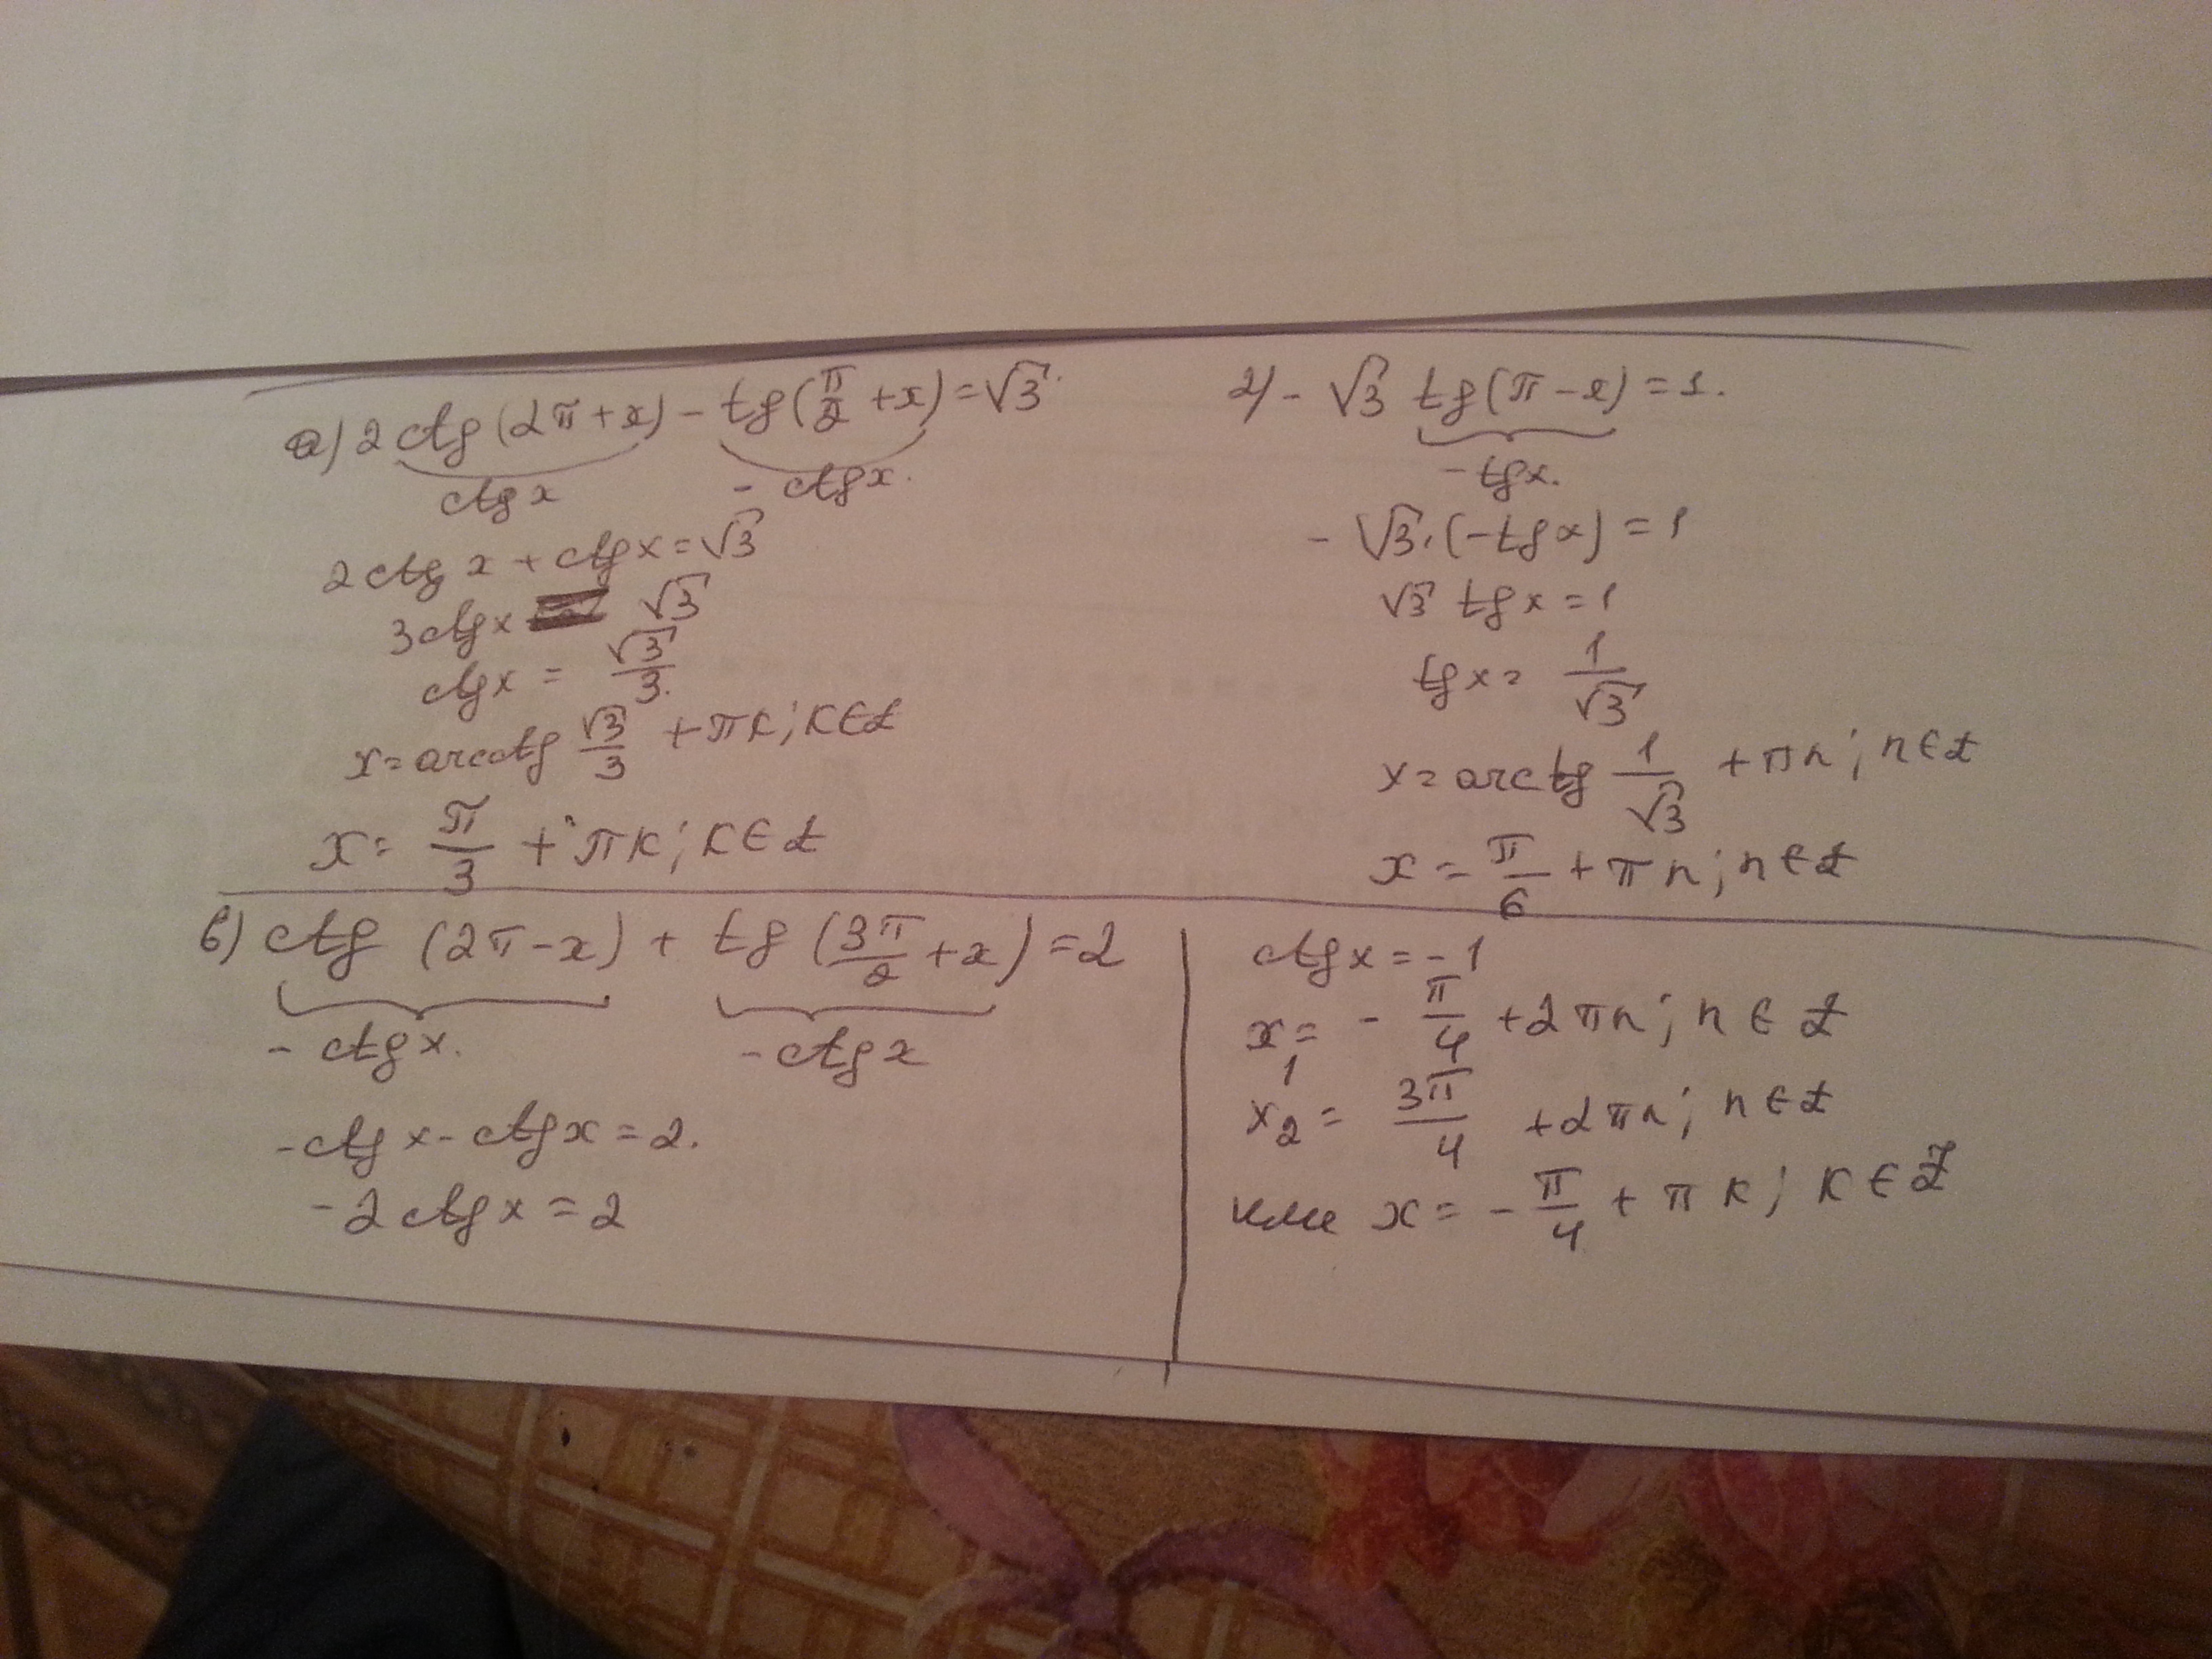 а) 2 ctg (2π + x) − tg (π/2 + x) = √3.
ctg x − ctg x.
2 ctg x + ctg x = √3
3 ctg x √3
ctg x = √3/3.
x = arcctg √3/3 + πк; к ∈ Z
x = π/3 + πк; к ∈ Z
г) − √3 tg (π − x) = 1.
− tg x.
− √3 · (−tg x) = 1
√3 tg x = 1
tg x = 1/√3
x = arctg 1/√3 + πn; n ∈ Z
x = π/6 + πn; n ∈ Z
в) ctg (2π − x) + tg (3π/2 + x) = 2
− ctg x. − ctg x
− ctg x − ctg x = 2.
− 2 ctg x = 2
ctg x = − 1
x₁ = − π/4 + 2πn; n ∈ Z
x₂ = 3π/4 + 2πn; n ∈ Z
или x = − π/4 + πк; к ∈ Z